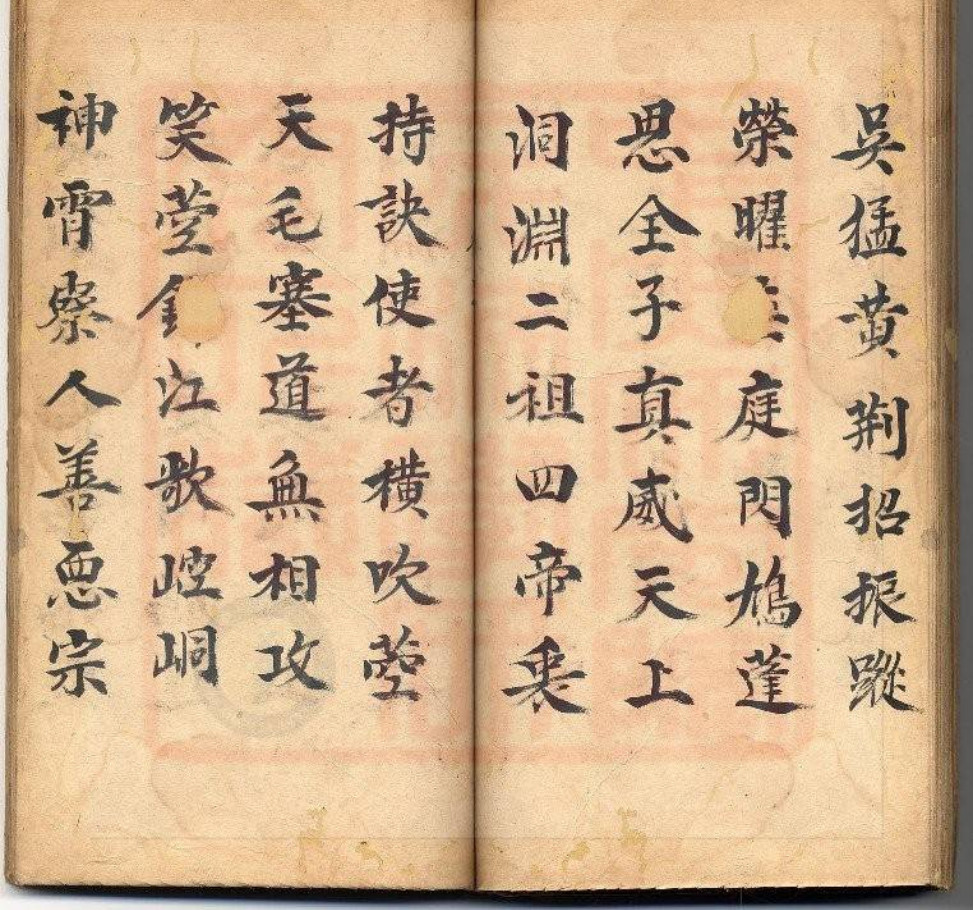 吳猛黃荆招振蹤
榮曜庭閃蓬
思全子真威天上
洞淵二祖四帝
持訣使者橫吹
天毛塞道無相攻
笑江歌崆峒
神霄察人善悪宗